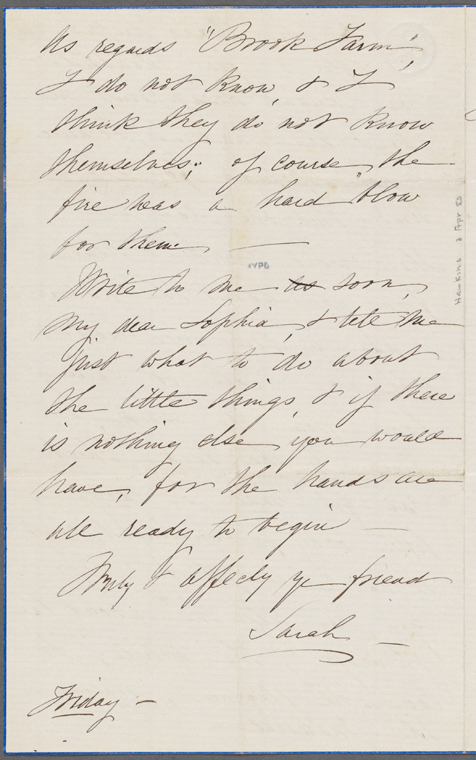 As regards "Brook Farm",
I do not know, & I
think they do not know
themselves; of course the
fire was a hard blow
for them. —
NYPB
Write to me as soon,
my dear Sophia, & tell me
just what to do about
the little things, & if there
is nothing else you would
have, for the hands are
all ready to begin —
Truly & affecly yr friend
Sarah —
Friday —